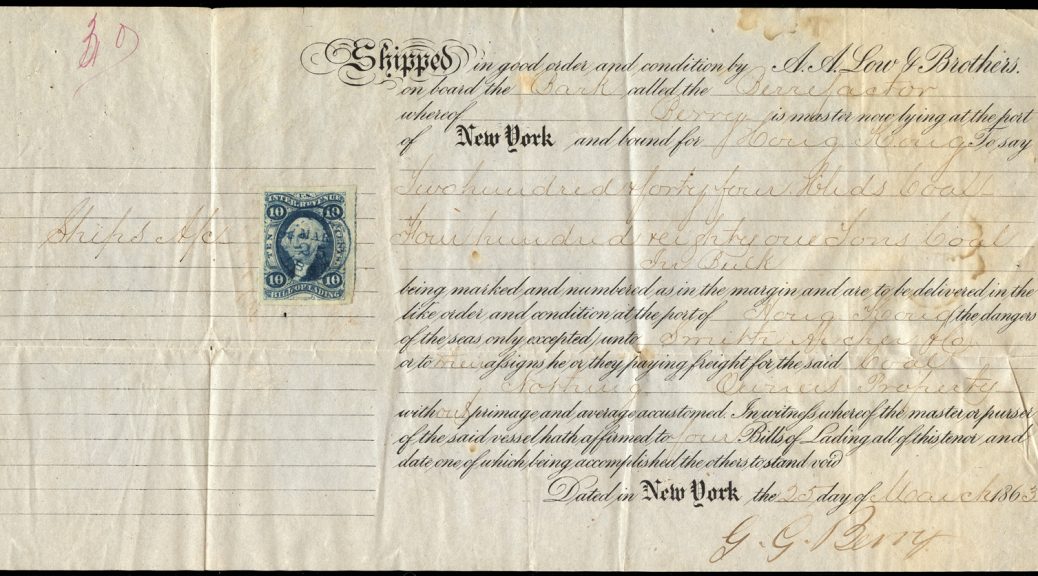 Shipped in good order and condition by A. A. Low & Brothers.
on board the Bark called the Benefactor
whereof Berry is master now lying at the port
of New York and bound for Hong Kong To say
Two hundred & forty four Hhds Coal
Ships A/c
Four hundred & eighty one Tons Coal
In Bulk
U.S.
INTER. REVENUE
10 10
TEN CENTS
10 10
BILL OF LADING
being marked and numbered as in the margin and are to be delivered in the
like order and condition at the port of Hong Kong the dangers
of the seas only excepted, unto Smith Archer & Co
or to their assigns he or they paying freight for the said Coal
Nothing Owners Property
without primage and average accustomed. In witness whereof the master or purser
of the said vessel hath affirmed to four Bills of Lading all of this tenor and
date one of which being accomplished the others to stand void
Dated in New York the 25 day of March 1863
G. G. Berry